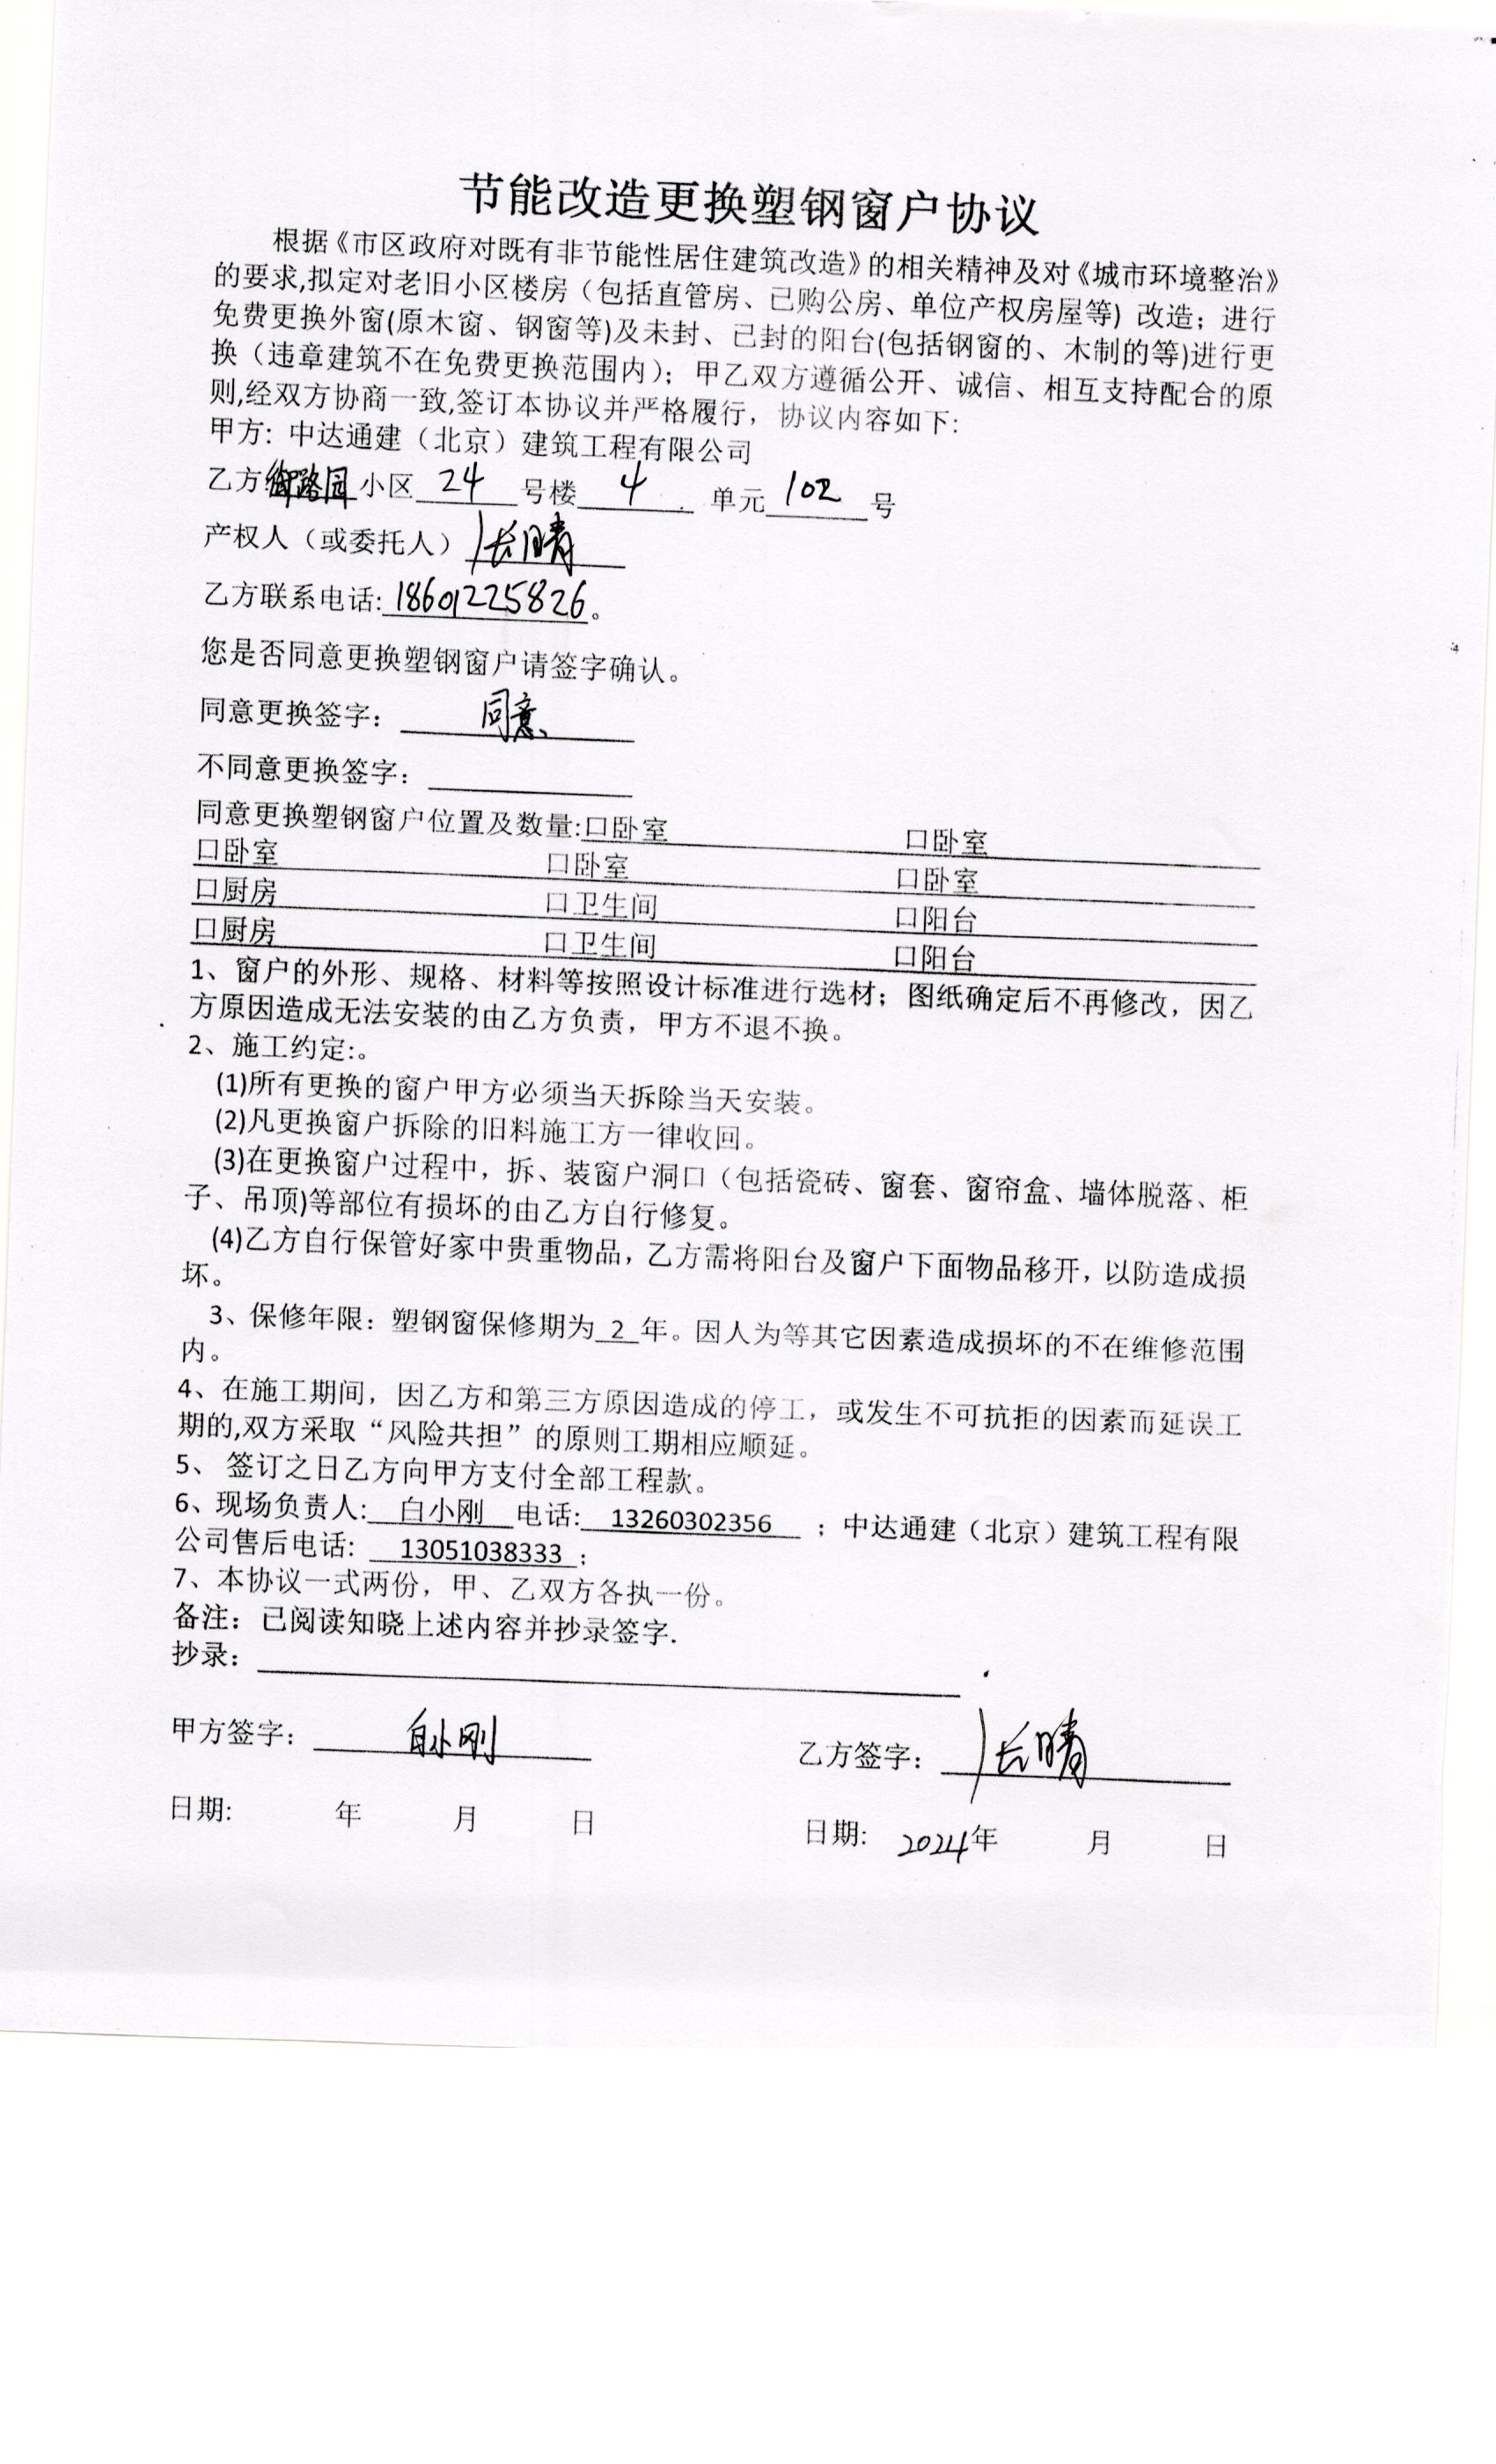 节能改造更换塑钢窗户协议
根据《市区政府对既有非节能性居住建筑改造》的相关精神及对《城市环境整治》
的要求,拟定对老旧小区楼房（包括直管房、已购公房、单位产权房屋等）改造；进行
免费更换外窗(原木窗、钢窗等)及未封、已封的阳台(包括钢窗的、木制的等)进行更
换（违章建筑不在免费更换范围内）；甲乙双方遵循公开、诚信、相互支持配合的原
则,经双方协商一致,签订本协议并严格履行，协议内容如下:
甲方: 中达通建（北京）建筑工程有限公司
乙方御路园小区 24 号楼 4 单元 102 号
产权人（或委托人）张晴
乙方联系电话: 18601225826。
您是否同意更换塑钢窗户请签字确认。
同意更换签字: 同意
不同意更换签字:
同意更换塑钢窗户位置及数量:口卧室 口卧室
口卧室 口卧室 口卧室
口厨房 口卫生间 口阳台
口厨房 口卫生间 口阳台
1、窗户的外形、规格、材料等按照设计标准进行选材；图纸确定后不再修改，因乙
方原因造成无法安装的由乙方负责，甲方不退不换。
2、施工约定:。
(1)所有更换的窗户甲方必须当天拆除当天安装。
(2)凡更换窗户拆除的旧料施工方一律收回。
(3)在更换窗户过程中，拆、装窗户洞口（包括瓷砖、窗套、窗帘盒、墙体脱落、柜
子、吊顶)等部位有损坏的由乙方自行修复。
(4)乙方自行保管好家中贵重物品，乙方需将阳台及窗户下面物品移开，以防造成损
坏。
3、保修年限：塑钢窗保修期为 2 年。因人为等其它因素造成损坏的不在维修范围
内。
4、在施工期间，因乙方和第三方原因造成的停工，或发生不可抗拒的因素而延误工
期的,双方采取“风险共担”的原则工期相应顺延。
5、 签订之日乙方向甲方支付全部工程款。
6、现场负责人: 白小刚 电话: 13260302356 ；中达通建（北京）建筑工程有限
公司售后电话: 13051038333；
7、本协议一式两份，甲、乙双方各执一份。
备注：已阅读知晓上述内容并抄录签字.
抄录:
甲方签字: 白小刚 乙方签字: 张晴
日期: 年 月 日 日期: 2024年 月 日